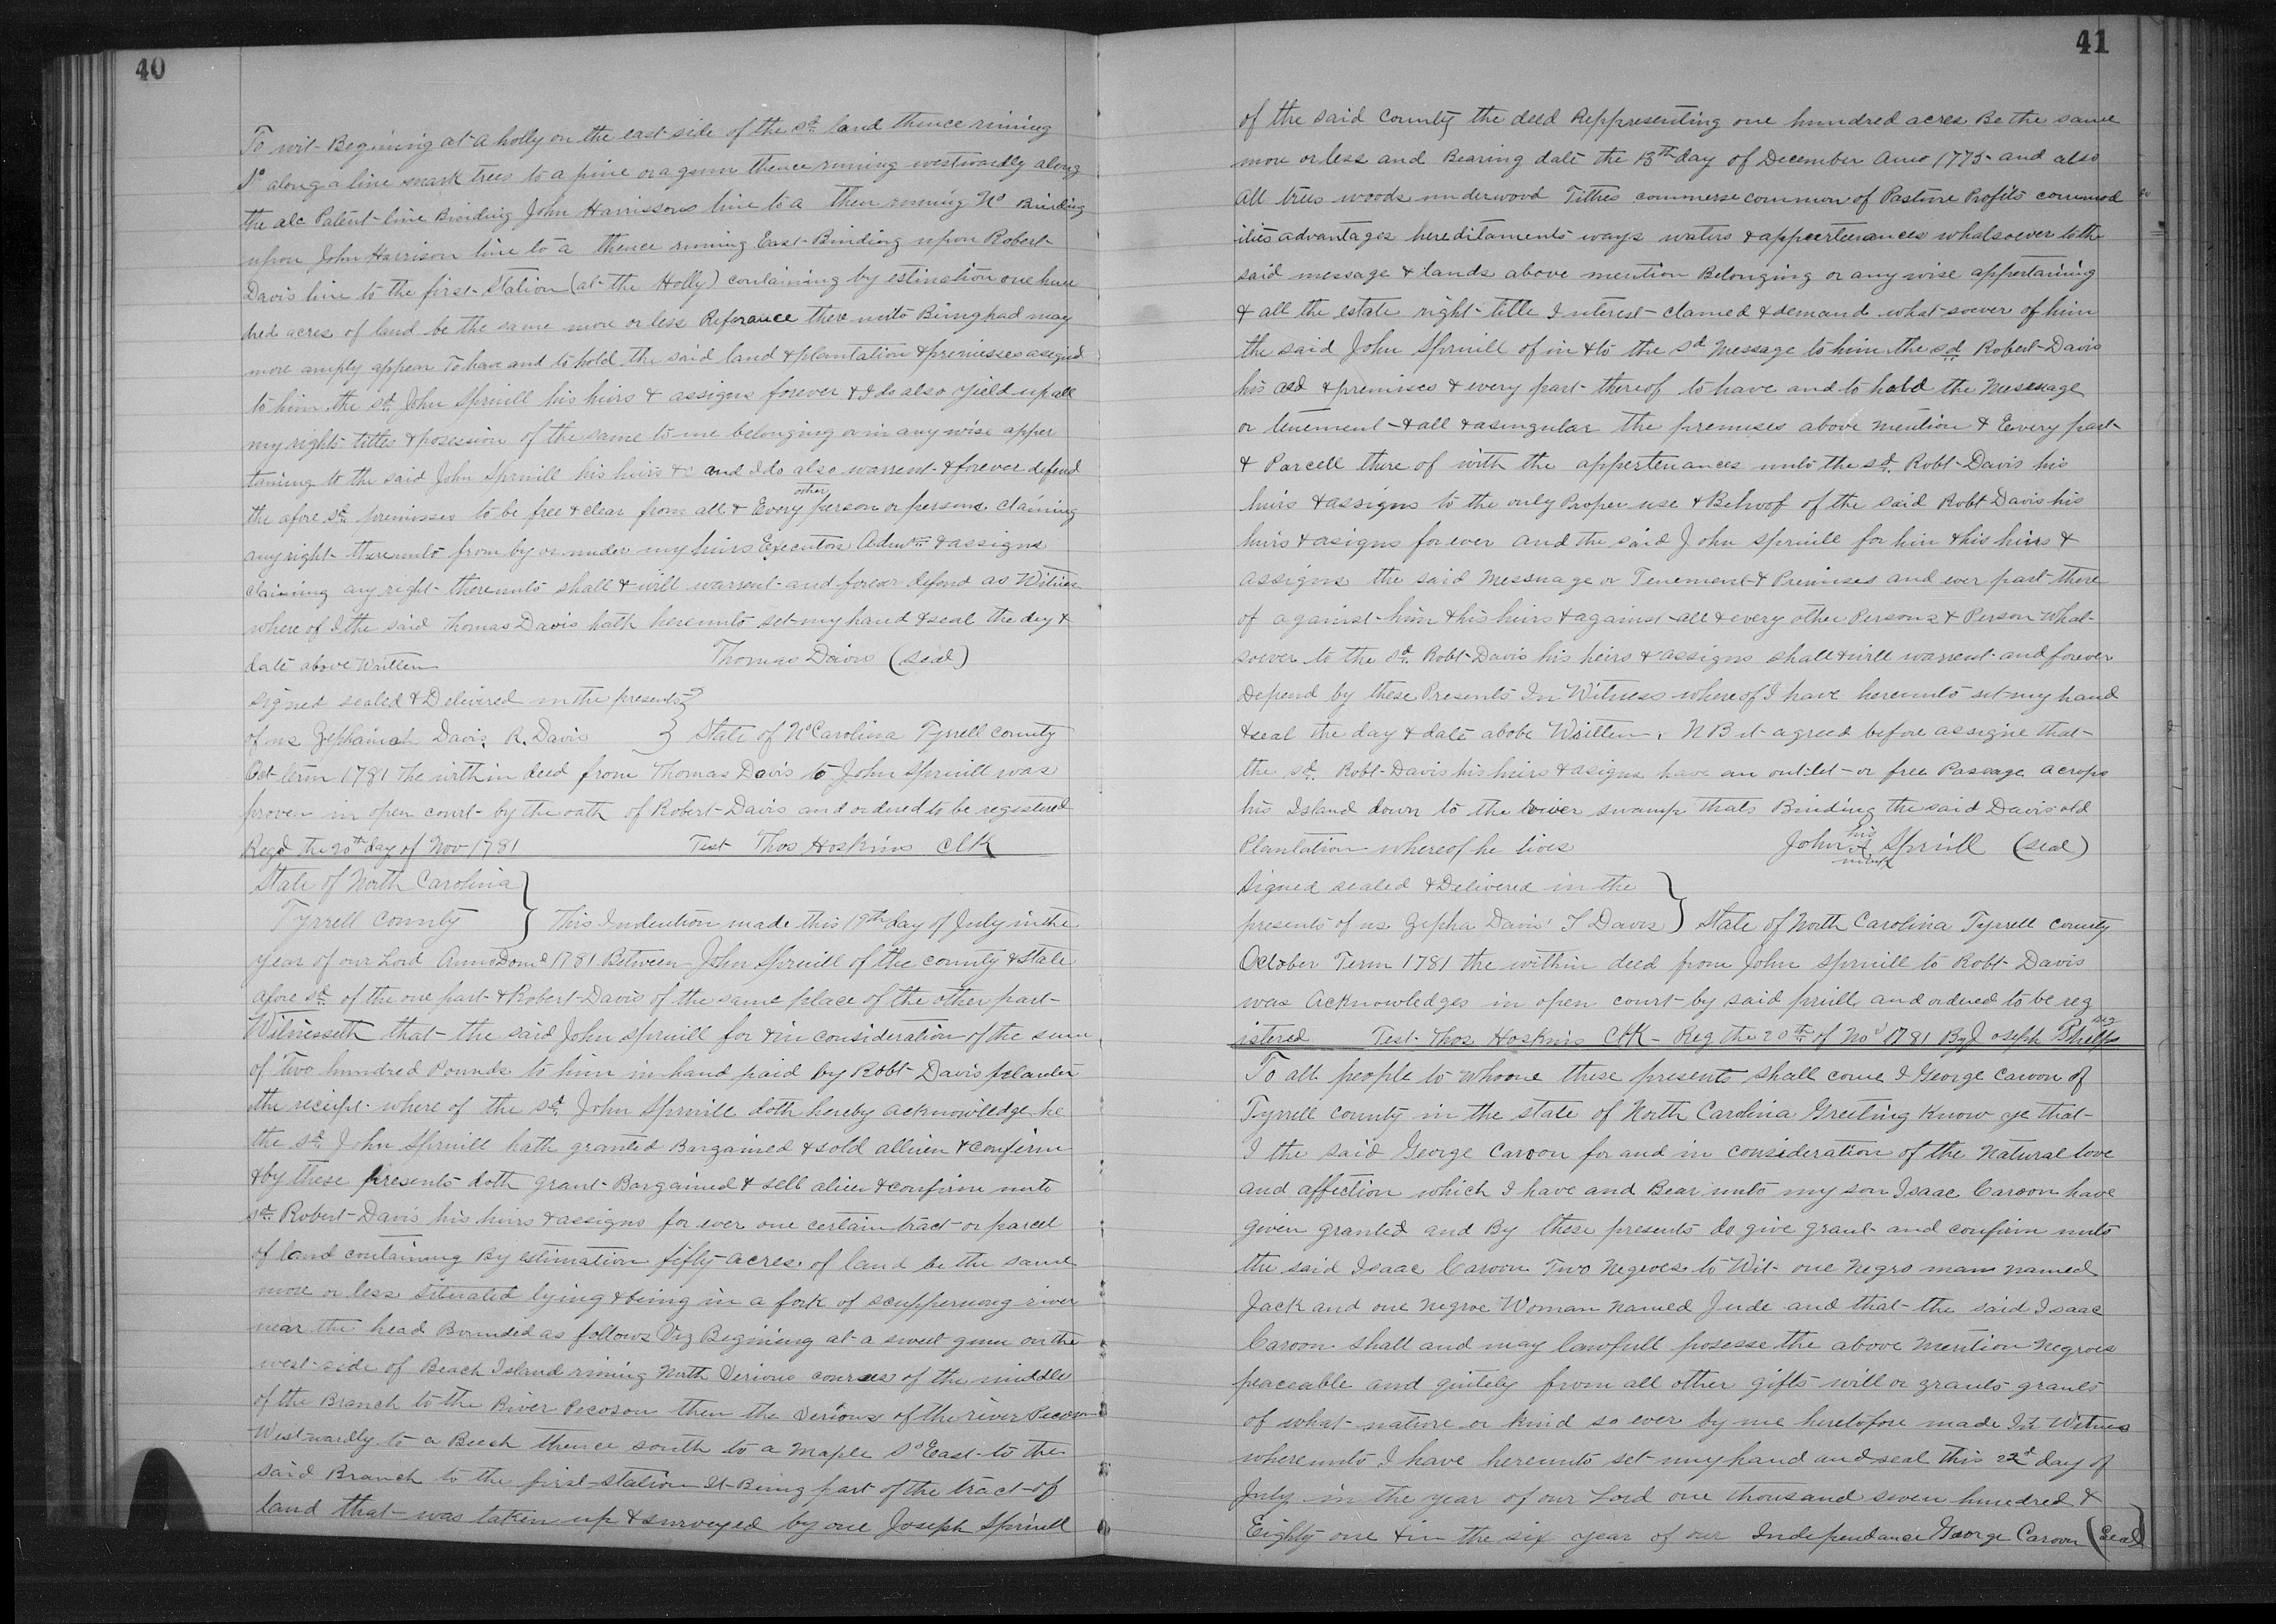 40
To wit Begining at a holly on the east side of the sd land thence runing
So along a line mark trees to a pine or a gum thence runing westwardly along
the alc Patent line Binding John Harrissons line to a then runing No Binding
upon John Harrison line to a thence runing East Binding upon Robert
Davis line to the first Station (at the Holly) containing by estimation one hun
dred acres of land be the same more or less Referance there unto Being had may
more amply appear To have and to hold the said land & plantation & premisses asigned
to him the sd John Spruill his heirs & assigns forever & I do also yield up all
my rights titles & posession of the same to me belonging or in any wise apper
taining to the said John Spruill his heirs &c and I do also warrent & forever defend
the afore sd premisses to be free & clear from all & Every other person or persons claiming
any right thereunto from by or under my heirs Executors Admrs & assigns
claiming any right thereunto shall & will warrent and forever defend as Witness
where of I the said Thomas Davis hath hereunto set my hand & seal the dey &
date above Written Thomas Davis (seal)
Signed sealed & Delivered in the presents
of us Zephaniah Davis. R. Davis } State of No Carolina Tyrrell County
Oct term 1781 the with in deed from Thomas Davis to John Spruill was
proven in open court by the oath of Robert Davis and ordered to be registered
Regd the 20th day of Nov 1781 Test Thos Hoskins Clk
State of North Carolina }
Tyrrell County } This Indention made this 19th day of July in the
year of our Lord Anno Dom 1781 Between John Spruill of the county & State
afore sd of the one part & Robert Davis of the same place of the other part
Witnesseth that the said John Spruill for & in consideration of the sum
of Two hundred Pounds to him in hand paid by Robt Davis planter
the receipt where of the sd John Spruill doth hereby acknowledge he
the sd John Spruill hath granted Bargained & sold allien & confirm
& by these presents doth grant Bargained & sell alien & confirm unto
sd Robert Davis his heirs & assigns for ever one certain tract or parcel
of land containing By estimation fifty acres of land be the same
more or less Situated lying & being in a fork of scuppernong river
near the head Bounded as follows Viz Begining at a sweet gum on the
west side of Beach Island runing North Verious courses of the middle
of the Branch to the River Pecoson then the Verious of the river Pecoson
Westwardly to a Beech thence south to a Maple So East to the
said Branch to the first station It Being part of the tract of
land that was taken up & surveyed by one Joseph Spruill
41
of the said County the deed Reppresenting one hundred acres Be the same
more or less and Bearing date the 13th day of December Ano 1775 and also
all trees woods underwood Tithes commerse common of Pasture Profits commod
ities advantages hereditaments ways waters & appeertenances whatsoever to the
said message & lands above mention Belonging or any wise appertaining
& all the estate right title Interest clamed & demand what soever of him
the said John Spruill of in & to the sd Message to him the sd Robert Davis
his asd & premises & every part thereof to have and to hold the Messuage
or tenement & all & asingular the premises above mention & Every part
& Parcell there of with the appertenances unto the sd. Robt Davis his
heirs & assigns to the only Proper use & Behoof of the said Robt Davis his
heirs & asigns for ever and the said John Spruill for him & his heirs &
assigns the said Messuage or Tenement & Premises and ever part there
of against him & his heirs & against all & every other Persons & Person What
soever to the sd. Robt Davis his heirs & assigns shall & will warrent and forever
Depend by these Presents In Witness whereof I have hereunto set my hand
& seal the day & date abobe Written. N B it agreed before assigne that
the sd. Robt Davis his heirs & asigns have an outlet or free Passage across
his Island down to the river swamp thats Binding the said Davis old
Plantation whereof he lives John his mark Spruill (seal)
Signed sealed & Delivered in the }
presents of us Zepha Davis T Davis } State of North Carolina Tyrrell County
October Term 1781 the within deed from John Spruill to Robt Davis
was acknowledges in open court by said pruill and ordered to be reg
istered Test Thos Hoskins Clk Reg the 20th of Nov 1781 By Joseph Phelps reg
To all people to whome these presents shall come I George Caroon of
Tyrrell County in the state of North Carolina Greeting Know ye that
I the said George Caroon for and in consideration of the Natural love
and affection which I have and Bear unto my son Isaac Caroon have
given granted and By these presents do give grant and confirm unto
the said Isaac Caroon Two Negroes to Wit one Negro man named
Jack and one negroe Woman Named Jude and that the said Isaac
Caroon shall and may lawfull posesse the above mention negroes
peaceable and quitely from all other gifts will or grants grants
of what nature or kind so ever by me heretofore made In Witness
whereunto I have hereunto set my hand and seal this 22d day of
July in the year of our Lord one thousand seven hundred &
Eighty one & in the six year of our Independance George Caroon (Seal)